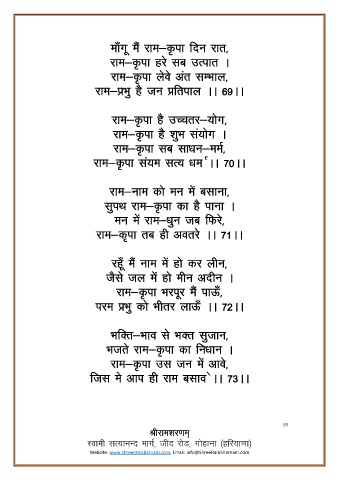 माँगू मैं राम–कृपा दिन रात,
राम–कृपा हरे सब उत्पात ।
राम–कृपा लेवे अंत सम्भाल,
राम–प्रभु है जन प्रतिपाल ।। 69।।
राम–कृपा है उच्चतर–योग,
राम–कृपा है शुभ संयोग ।
राम–कृपा सब साधन–मर्म,
राम–कृपा संयम सत्य धर्म ।। 70।।
राम–नाम को मन में बसाना,
सुपथ राम–कृपा का है पाना ।
मन में राम–धुन जब फिरे,
राम–कृपा तब ही अवतरे ।। 71।।
रहूँ मैं नाम में हो कर लीन,
जैसे जल में हो मीन अदीन ।
राम–कृपा भरपूर मैं पाऊँ,
परम प्रभु को भीतर लाऊँ ।। 72।।
भक्ति–भाव से भक्त सुजान,
भजते राम–कृपा का निधान ।
राम–कृपा उस जन में आवे,
जिस मे आप ही राम बसावे ।। 73।।
श्रीरामशरणम्
स्वामी सत्यानन्द मार्ग, जींद रोड, गोहाना (हरियाणा)
Website: www.shreeramsharnam.com, Email: info@ShreeRamSharnam.com